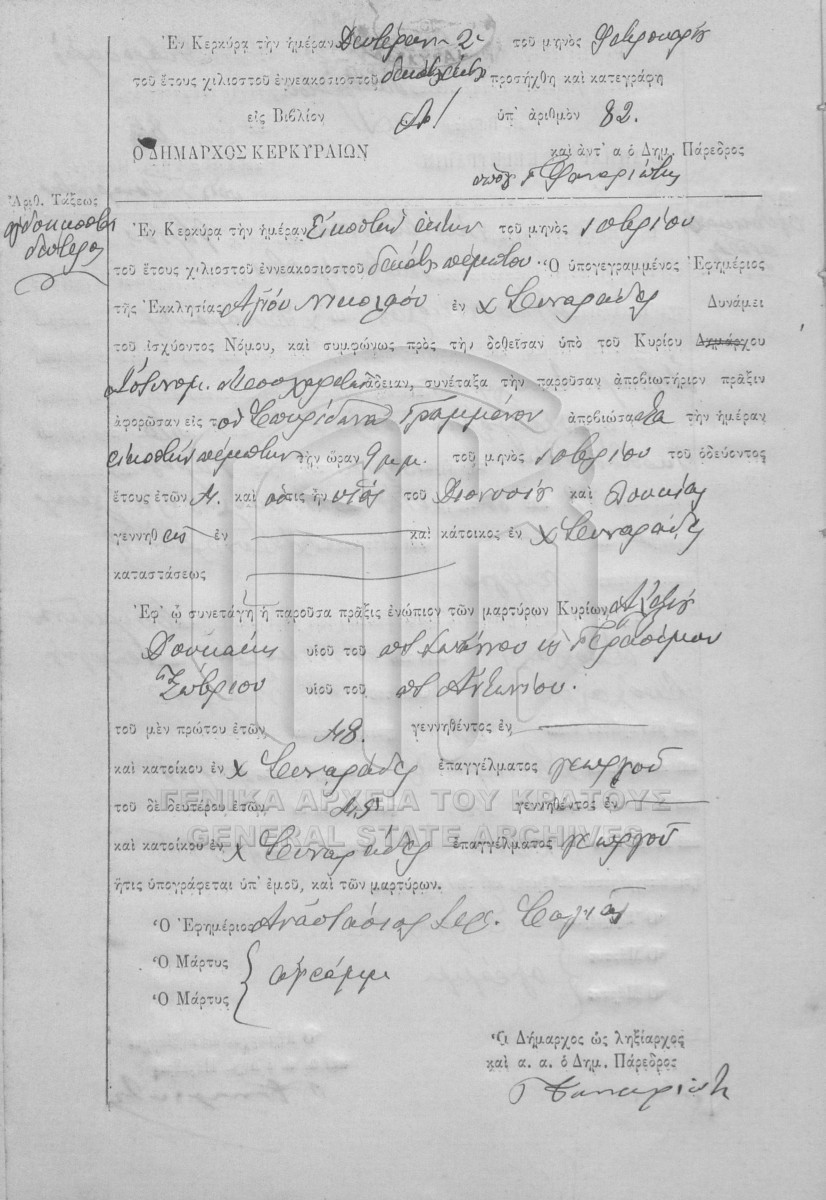 Ἐν Κερκύρᾳ τὴν ἡμέραν Δευτέραν 2 τοῦ μηνὸς
τοῦ ἔτους χιλιοστοῦ ἐννεακοσιοστοῦ προσήχθη καὶ κατεγράφη
εἰς Βιβλίον ὑπ' ἀριθμὸν 82.
Ὁ ΔΗΜΑΡΧΟΣ ΚΕΡΚΥΡΑΙΩΝ καὶ ἀντ' α ὁ Δημ. Πάρεδρος
Γ Φαναριώτης
Ἀριθ. Τάξεως
ὀγδοηκοστὴ
δευτέρα
Ἐν Κερκύρᾳ τὴν ἡμέραν Εἰκοστὴν ἕκτην τοῦ μηνὸς 10βρίου
τοῦ ἔτους χιλιοστοῦ ἐννεακοσιοστοῦ δεκάτου πέμπτου Ὁ ὑπογεγραμμένος Ἐφημέριος
τῆς Ἐκκλησίας Ἁγίου Νικολάου ἐν χ Συναράδες Δυνάμει
τοῦ ἰσχύοντος Νόμου, καὶ συμφώνως πρὸς τὴν δοθεῖσαν ὑπὸ τοῦ Κυρίου Δημάρχου
Ἀστυνομ. ἄδειαν, συνέταξα τὴν παροῦσαν ἀποβιωτήριον πρᾶξιν
ἀφορῶσαν εἰς τὸν Σπυρίδωνα Γραμμένον ἀποβιώσαντα τὴν ἡμέραν
εἰκοστὴν πέμπτην τὴν ὥραν 9 μμ. τοῦ μηνὸς 10βρίου τοῦ ὁδεύοντος
ἔτους ἐτῶν καὶ ὅστις ἦν υἱὸς τοῦ Διονυσίου καὶ Λουκίας
γεννηθεὶς ἐν καὶ κάτοικος ἐν χ Συναράδες
καταστάσεως
Ἐφ' ᾧ συνετάγη ἡ παροῦσα πρᾶξις ἐνώπιον τῶν μαρτύρων Κυρίων
Δουκάκης υἱοῦ τοῦ Γεράσιμου
υἱοῦ τοῦ Ἀντωνίου.
τοῦ μὲν πρώτου ἐτῶν 48. γεννηθέντος ἐν
καὶ κατοίκου ἐν χ Συναράδες ἐπαγγέλματος γεωργοῦ
τοῦ δὲ δευτέρου ἐτῶν 45 γεννηθέντος ἐν
καὶ κατοίκου ἐν χ Συναράδες ἐπαγγέλματος γεωργοῦ
ἥτις ὑπογράφεται ὑπ' ἐμοῦ, καὶ τῶν μαρτύρων.
Ὁ Ἐφημέριος Ἀναστάσιος Ἱερ.
Ὁ Μάρτυς
ἀγράμμ
Ὁ Μάρτυς
Ὁι Δήμαρχος ὡς ληξίαρχος
καὶ α. α. ὁ Δημ. Πάρεδρος
Γ Φαναριώτης
ΓΕΝΙΚΑ ΑΡΧΕΙΑ ΤΟΥ ΚΡΑΤΟΥΣ
GENERAL STATE ARCHIVES